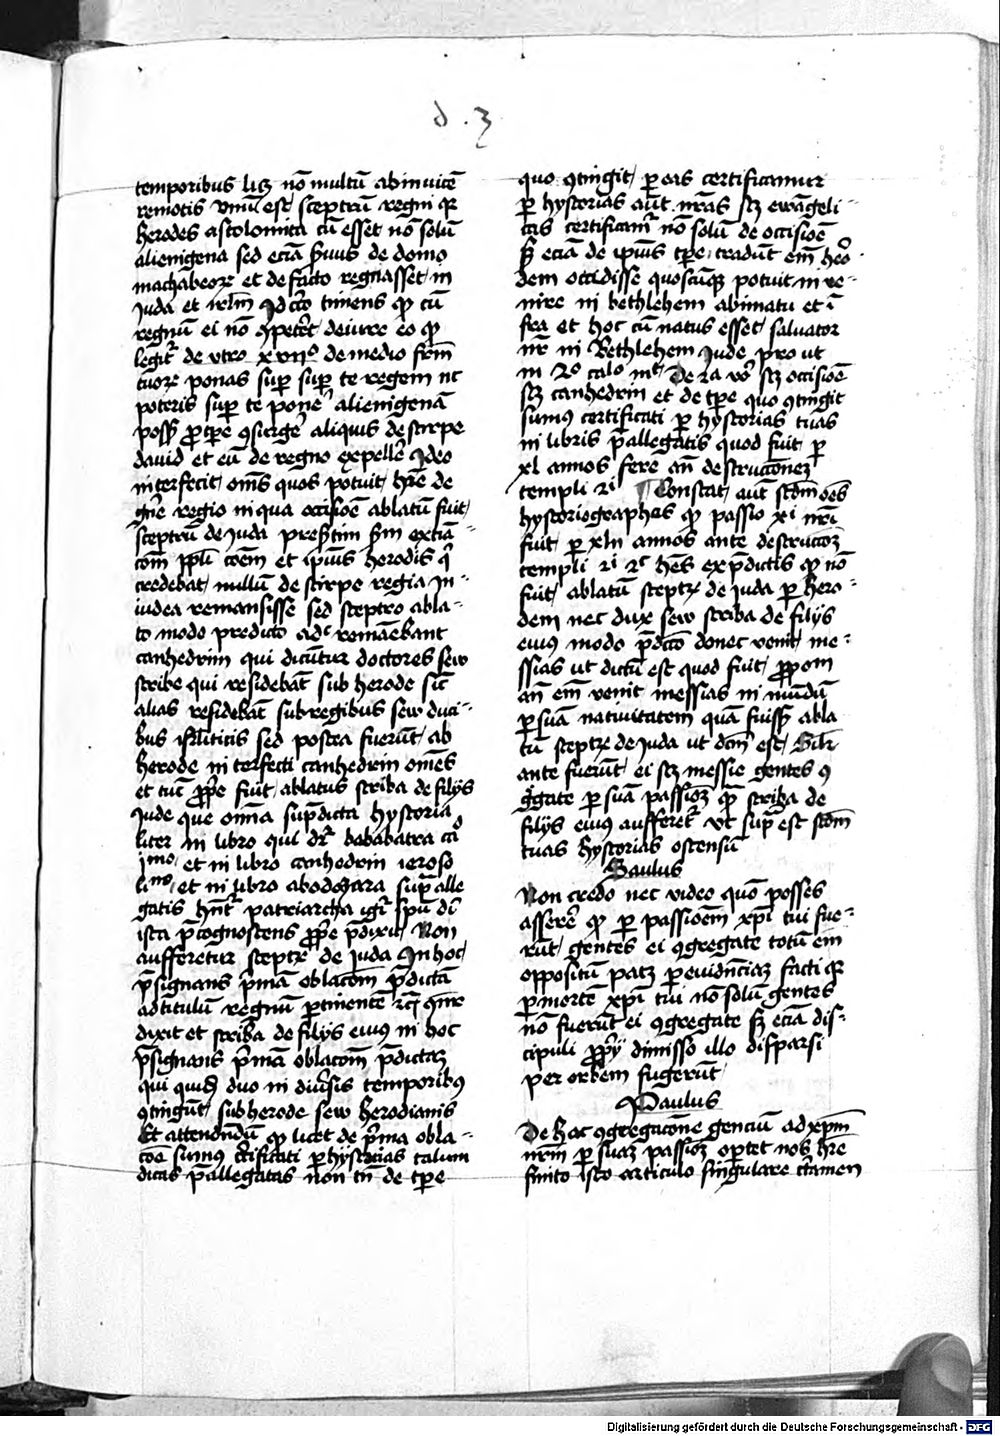 d . 3
temporibus licz nō multū abinuicē
remotis vnū est sceptrū regni qr
herodes ascolonita cū esset nō solū
alienigena sed eciā s̄uus de domo
machabeorz et de facto regnasset in
Juda et irlm̄ Jdcirco timens qp cū
regnū ei nō 9peteret deiure eo qp
legitr̄ de vtro xviiº de medio frm̄
tuorz ponas sup̄ sup̄ te regem nc
poteris sup̄ te ponē alienigenā
poss; p̄tpe 9surgē aliquis de stirpe
dauid et eū de regno expellē Jdeo
interfecit om̄s quos potuit hr̄e de
gn̄e regio in qua occisiōe ablatū fuit
sceptrū de Juda presertim sm̄ extia-
com̄ ppl̄i coēm et ipius herodis q̄
credebat nullū de stirpe regia in-
iudea remansisse sed sceptro abla-
to modo predicto adc̄ remāebant
canhedrim qui dicūtur doctores sew
scribe qui residebāt sub herode sic̄
alias residebāt subregibus sew duci-
bus isrl̄iticis sed postea fuerūt ab
herode interfecti canhedrin omēs
et tūc p̄pe fuit ablatus scriba de filijs
Jude que omīa sup̄dicta hystoria
liter in libro qui dr̄ bababatra caº
jmo et in libro canhedrin ieroso
limo et in libro abodozara sup̄ alle
gatis hn̄tr patriarcha igr̄ spū di
ista p̄cognoscens p̄pe p̄dixit Non
aufferetur sceptrz de Juda In hoc
p̄signans p̄mā oblacom̄ p̄dictā
ad titulū regnū p̄tinentē
dixit et scriba de filijs eius in hoc
p̄signans p̄mā oblacom̄ p̄dictaz
qui quid; duo in diūsis temporibus
9tingūt sub herode sew herodianis
Et attendendū qp licet de p̄ma obla-
coē sumus c̄tificati p̄ hystorias talum
dicas p̄allegatas non tn̄ de tpe
quo 9tingit p̄ eas certificamur
p̄ hystorias aūt nr̄as scz ewāgeli-
cas certificamr̄ nō solū de occisiōe
sz eciā de ipius tpe tradūt em̄ hero-
dem occidisse quoscūqz potuit inue-
nire in bethlehem abimatu et ī
fra et hoc cū natus esset saluator
nr̄ in Bethlehem Jude pro ut
in 2º calo mt̄ De 2a vo scz occisiōe
scz canhedrin et de tpe quo 9tingit
sumus certificati p̄ hystorias tuas
in libris p̄allegatis quod fuit p̄
xl annos fere an̄ destructionez
templi 2i Constat aut̄ scdm̄ oēs
hystoriographos qp passio xi nr̄i
fuit p̄ xlii annos ante destruccōz
templi 2i 2c hēs ex p̄dictis qp nō
fuit ablatū sceptrz de Juda p̄ hero-
dem nec dux sew scriba de filijs
eius modo p̄dicto donec venit me-
ssias ut dictū est quod fuit
an̄ em̄ venit messias in mūdū
p̄ suā natiuitatem quā fuiss; abla
tū sceptrz de Juda ut dcm̄ est Silr̄
ante fuerūt ei scz messie gentes 9
ggate p̄ suā passioz qp̄ scriba de
filijs eius aufferetr̄ vt sup̄ est scdm̄
tuas hystorias ostensū
Saulus
Non credo nec video quō posses
asserē qp p̄ passioēm xpī tui fue-
rūt gentes ei 9gregate totū em̄
oppositū patz p̄ euidnciaz facti qr
p̄ mortē xpī tui nō solū gentes
nō fuerūt ei 9gregate sz eciā dis-
cipuli p̄prij dimisso illo disparsi
per orbem fugerūt
Paulus
De hac 9gregacōne genciū ad xpm̄
nrm̄ p̄ suaz passioz optet nos hr̄e
finito isto articulo singulare ctamen
Digitalisierung gefördert durch die Deutsche Forschungsgemeinschaft - DFG